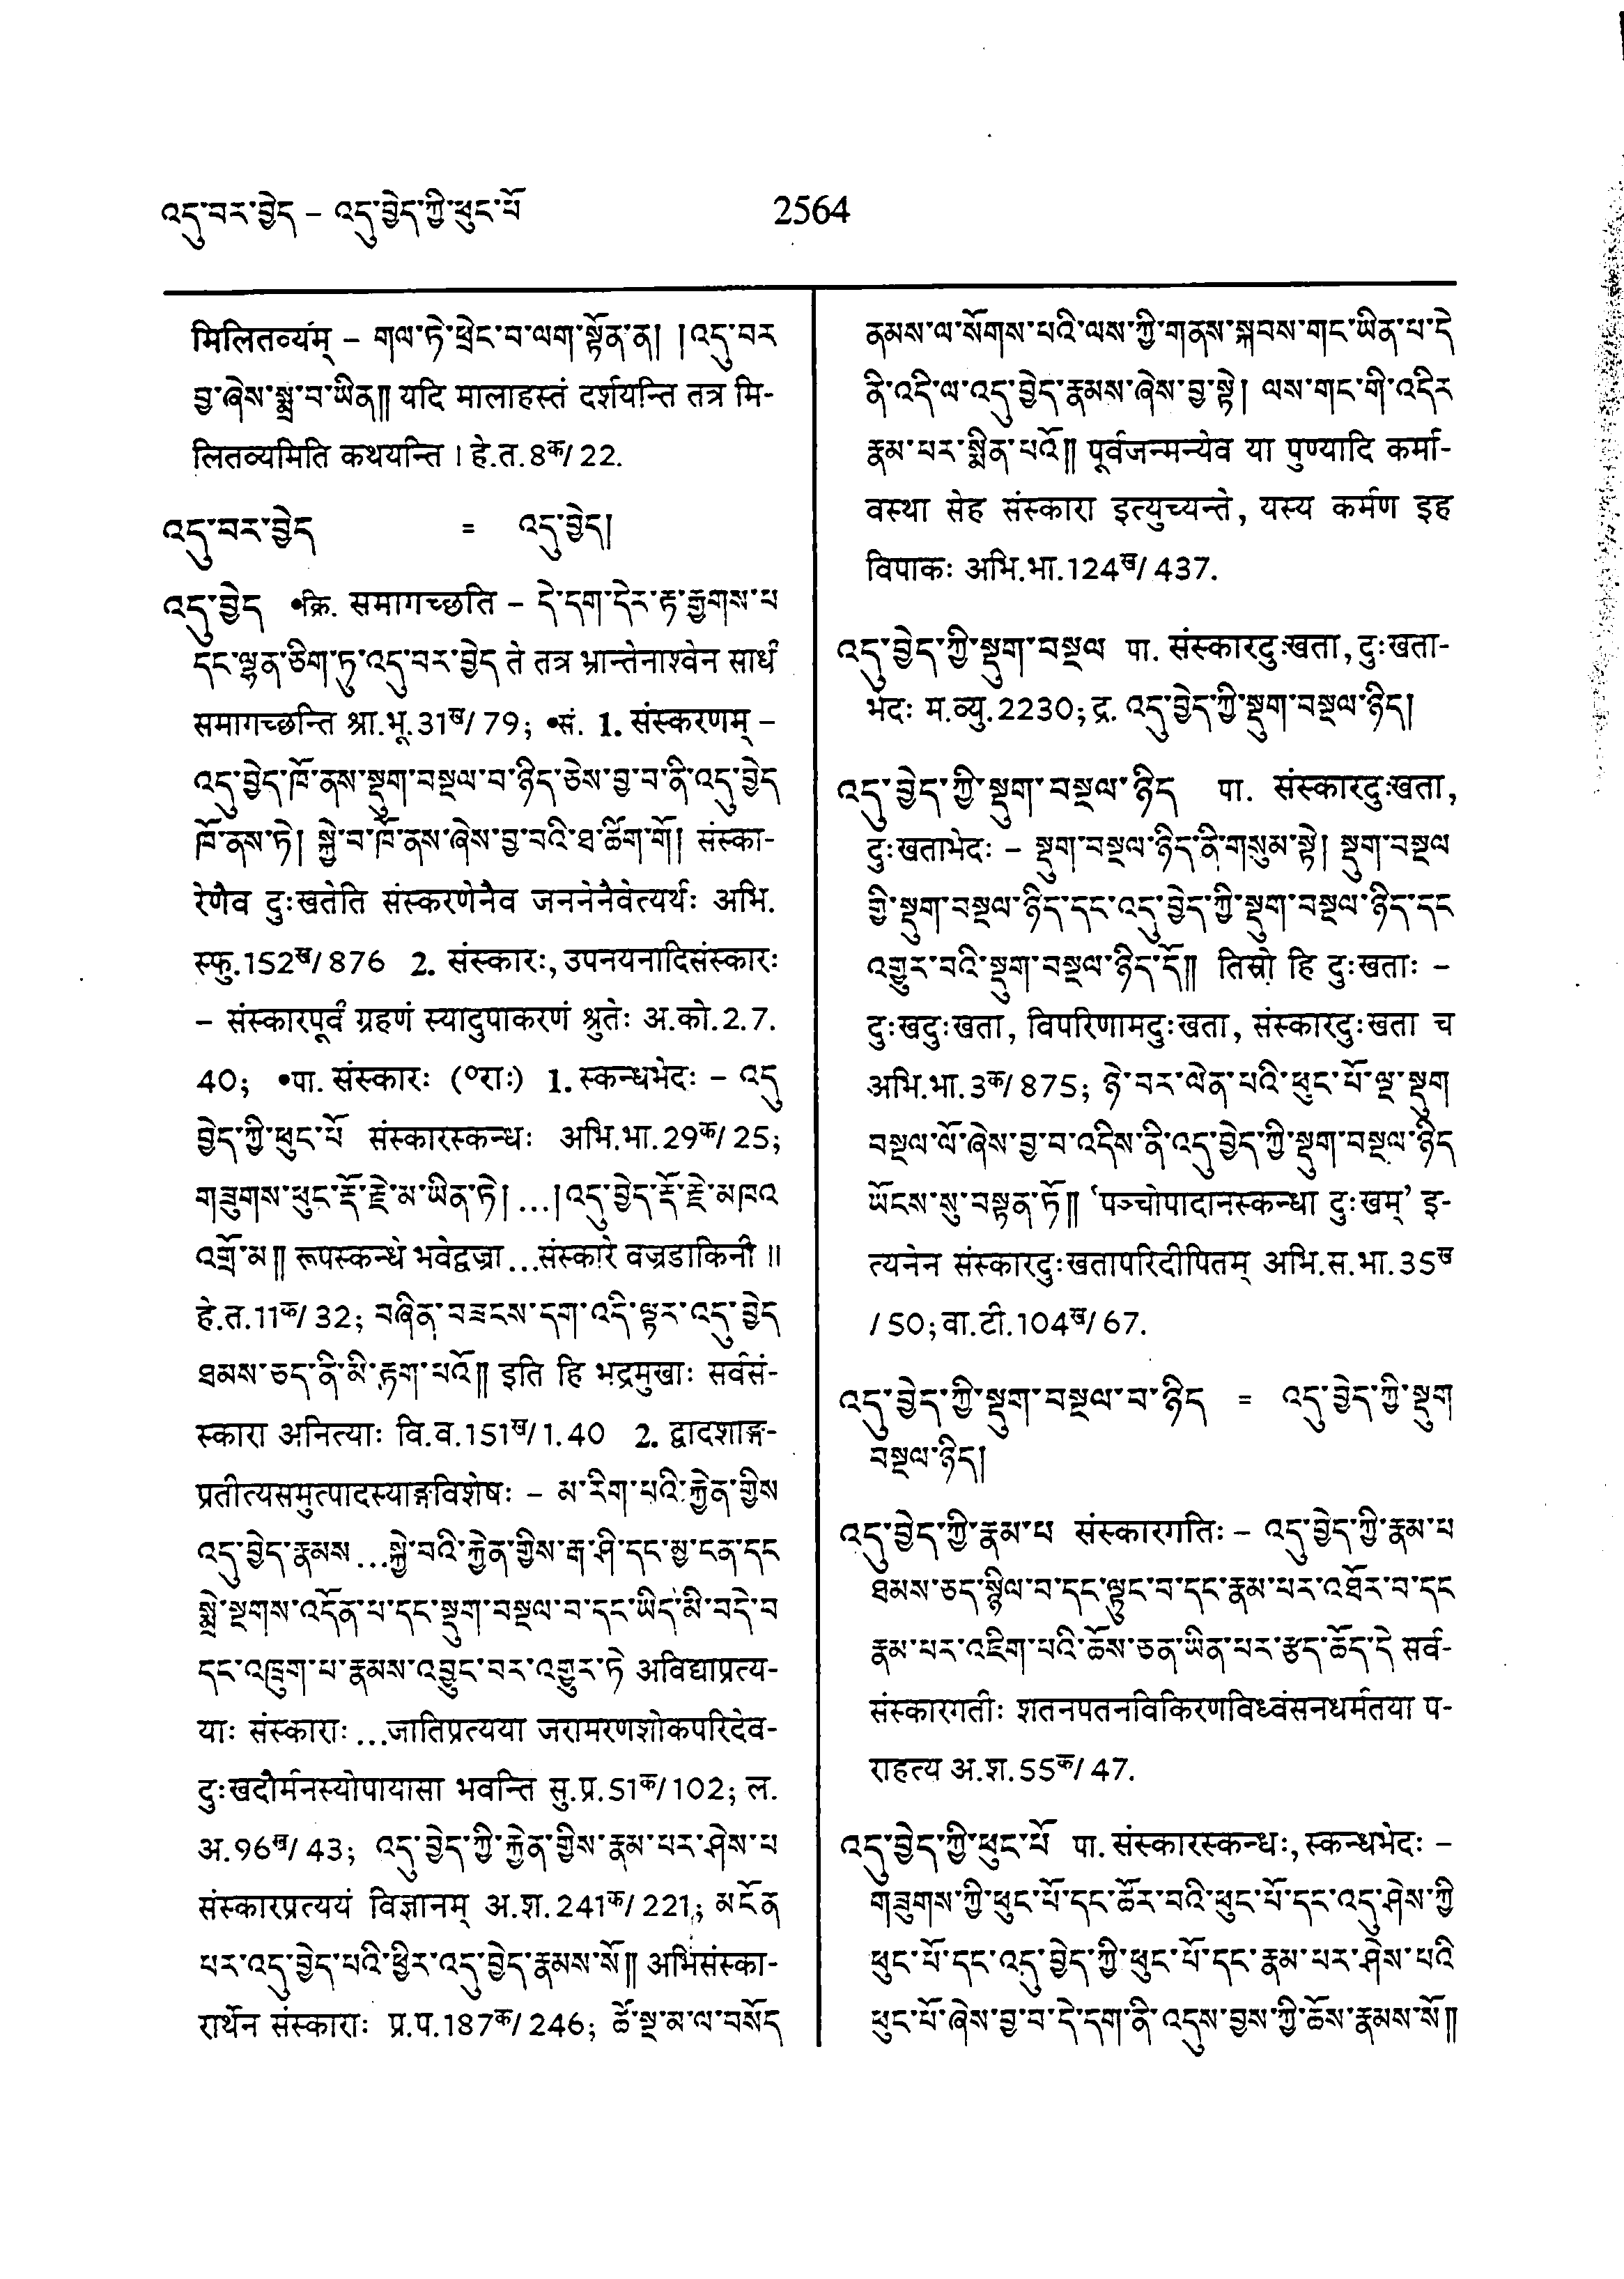 འདུ་བར་བྱེད – འདུ་བྱེད་ཀྱི་ཕུང་པོ
2564
मिलितव्यम् – གལ་ཏེ་ཕྲེང་བ་ལག་སྟོན་ན། །འདུ་བར
བྱ་ཞེས་སྨྲ་བ་ཡིན༎ यदि मालाहस्तं दर्शयन्ति तत्र मि-
लितव्यमिति कथयन्ति । हे.त.8क/22.
འདུ་བར་བྱེད = འདུ་བྱེད།
འདུ་བྱེད •क्रि. समागच्छति – དེ་དག་དེར་རྟ་རྒྱགས་པ
དང་ལྷན་ཅིག་ཏུ་འདུ་བར་བྱེད ते तत्र भ्रान्तेनाश्वेन सार्धं
समागच्छन्ति श्रा.भू.31ख/79; •सं. 1. संस्करणम् –
འདུ་བྱེད་ཁོ་ནས་སྡུག་བསྔལ་བ་ཉིད་ཅེས་བྱ་བ་ནི་འདུ་བྱེད
ཁོ་ནས་ཏེ། སྐྱེ་བ་ཁོ་ནས་ཞེས་བྱ་བའི་ཐ་ཚིག་གོ། संस्का-
रेणैव दुःखतेति संस्करणेनैव जननेनैवेत्यर्थः अभि.
स्फु.152ख/876 2. संस्कारः, उपनयनादिसंस्कारः
– संस्कारपूर्वं ग्रहणं स्यादुपाकरणं श्रुतेः अ.को.2.7.
40; •पा. संस्कारः (०राः) 1. स्कन्धभेदः – འདུ
བྱེད་ཀྱི་ཕུང་པོ संस्कारस्कन्धः अभि.भा.29क/25;
གཟུགས་ཕུང་རྡོ་རྗེ་མ་ཡིན་ཏེ།...།འདུ་བྱེད་རྡོ་རྗེ་མཁའ
འགྲོ་མ༎ रूपस्कन्धे भवेद्वज्रा...संस्कारे वज्रडाकिनी ॥
हे.त.11क/32; བཞིན་བཟངས་དག་འདི་ལྟར་འདུ་བྱེད
ཐམས་ཅད་ནི་མི་རྟག་པའོ༎ इति हि भद्रमुखाः सर्वसं-
स्कारा अनित्याः वि.व.151ख/1.40 2. द्वादशाङ्ग-
प्रतीत्यसमुत्पादस्याङ्गविशेषः – མ་རིག་པའི་རྐྱེན་གྱིས
འདུ་བྱེད་རྣམས...སྐྱེ་བའི་རྐྱེན་གྱིས་རྒ་ཤི་དང་མྱ་ངན་དང
སྨྲེ་སྔགས་འདོན་པ་དང་སྡུག་བསྔལ་བ་དང་ཡིད་མི་བདེ་བ
དང་འཁྲུག་པ་རྣམས་འབྱུང་བར་འགྱུར་ཏེ अविद्याप्रत्य-
याः संस्काराः ...जातिप्रत्यया जरामरणशोकपरिदेव-
दुःखदौर्मनस्योपायासा भवन्ति सु.प्र.51क/102; ल.
अ.96ख/43; འདུ་བྱེད་ཀྱི་རྐྱེན་གྱིས་རྣམ་པར་ཤེས་པ
संस्कारप्रत्ययं विज्ञानम् अ.श.241क/221; མངོན
པར་འདུ་བྱེད་པའི་ཕྱིར་འདུ་བྱེད་རྣམས་སོ༎ अभिसंस्का-
रार्थेन संस्काराः प्र.प.187क/246; ཚེ་སྔ་མ་ལ་བསོད
ནམས་ལ་སོགས་པའི་ལས་ཀྱི་གནས་སྐབས་གང་ཡིན་པ་དེ
ནི་འདི་ལ་འདུ་བྱེད་རྣམས་ཞེས་བྱ་སྟེ། ལས་གང་གི་འདིར
རྣམ་པར་སྨིན་པའོ༎ पूर्वजन्मन्येव या पुण्यादि कर्मा-
वस्था सेह संस्कारा इत्युच्यन्ते, यस्य कर्मण इह
विपाकः अभि.भा.124ख/437.
འདུ་བྱེད་ཀྱི་སྡུག་བསྔལ पा. संस्कारदुःखता, दुःखता-
भेदः म.व्यु.2230; द्र. འདུ་བྱེད་ཀྱི་སྡུག་བསྔལ་ཉིད།
འདུ་བྱེད་ཀྱི་སྡུག་བསྔལ་ཉིད पा. संस्कारदुःखता,
दुःखताभेदः – སྡུག་བསྔལ་ཉིད་ནི་གསུམ་སྟེ། སྡུག་བསྔལ
གྱི་སྡུག་བསྔལ་ཉིད་དང་འདུ་བྱེད་ཀྱི་སྡུག་བསྔལ་ཉིད་དང
འགྱུར་བའི་སྡུག་བསྔལ་ཉིད་དོ༎ तिस्रो हि दुःखताः –
दुःखदुःखता, विपरिणामदुःखता, संस्कारदुःखता च
अभि.भा.3क/875; ཉེ་བར་ལེན་པའི་ཕུང་པོ་ལྔ་སྡུག
བསྔལ་ལོ་ཞེས་བྱ་བ་འདིས་ནི་འདུ་བྱེད་ཀྱི་སྡུག་བསྔལ་ཉིད
ཡོངས་སུ་བསྟན་ཏོ༎ ‘पञ्चोपादानस्कन्धा दुःखम्’ इ-
त्यनेन संस्कारदुःखतापरिदीपितम् अभि.स.भा.35ख
/50; वा.टी.104ख/67.
འདུ་བྱེད་ཀྱི་སྡུག་བསྔལ་བ་ཉིད = འདུ་བྱེད་ཀྱི་སྡུག
བསྔལ་ཉིད།
འདུ་བྱེད་ཀྱི་རྣམ་པ संस्कारगतिः – འདུ་བྱེད་ཀྱི་རྣམ་པ
ཐམས་ཅད་སྙིལ་བ་དང་ལྟུང་བ་དང་རྣམ་པར་འཐོར་བ་དང
རྣམ་པར་འཇིག་པའི་ཆོས་ཅན་ཡིན་པར་རྩད་ཆོད་དེ सर्व-
संस्कारगतीः शतनपतनविकिरणविध्वंसनधर्मतया प-
राहत्य अ.श.55क/47.
འདུ་བྱེད་ཀྱི་ཕུང་པོ पा. संस्कारस्कन्धः, स्कन्धभेदः –
གཟུགས་ཀྱི་ཕུང་པོ་དང་ཚོར་བའི་ཕུང་པོ་དང་འདུ་ཤེས་ཀྱི
ཕུང་པོ་དང་འདུ་བྱེད་ཀྱི་ཕུང་པོ་དང་རྣམ་པར་ཤེས་པའི
ཕུང་པོ་ཞེས་བྱ་བ་དེ་དག་ནི་འདུས་བྱས་ཀྱི་ཆོས་རྣམས་སོ༎